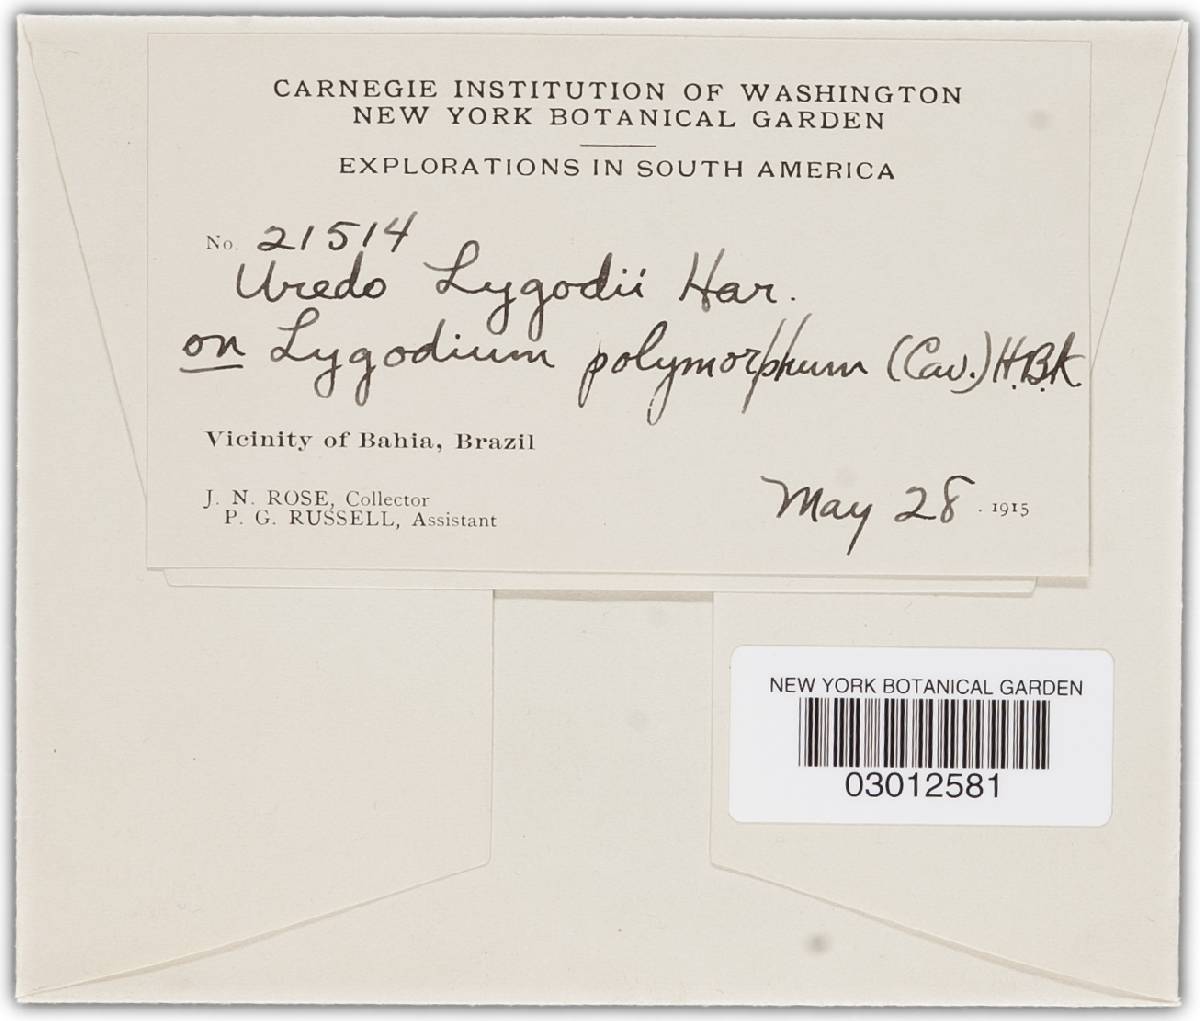 CARNEGIE INSTITUTION OF WASHINGTON
NEW YORK BOTANICAL GARDEN
EXPLORATIONS IN SOUTH AMERICA
No. 21514
Uredo Lygodii Har.
on Lygodium polymorphum (Cav.) H.B.K
Vicinity of Bahia, Brazil
J. N. ROSE, Collector
P. G. RUSSELL, Assistant
May 28. 1915
NEW YORK BOTANICAL GARDEN
03012581